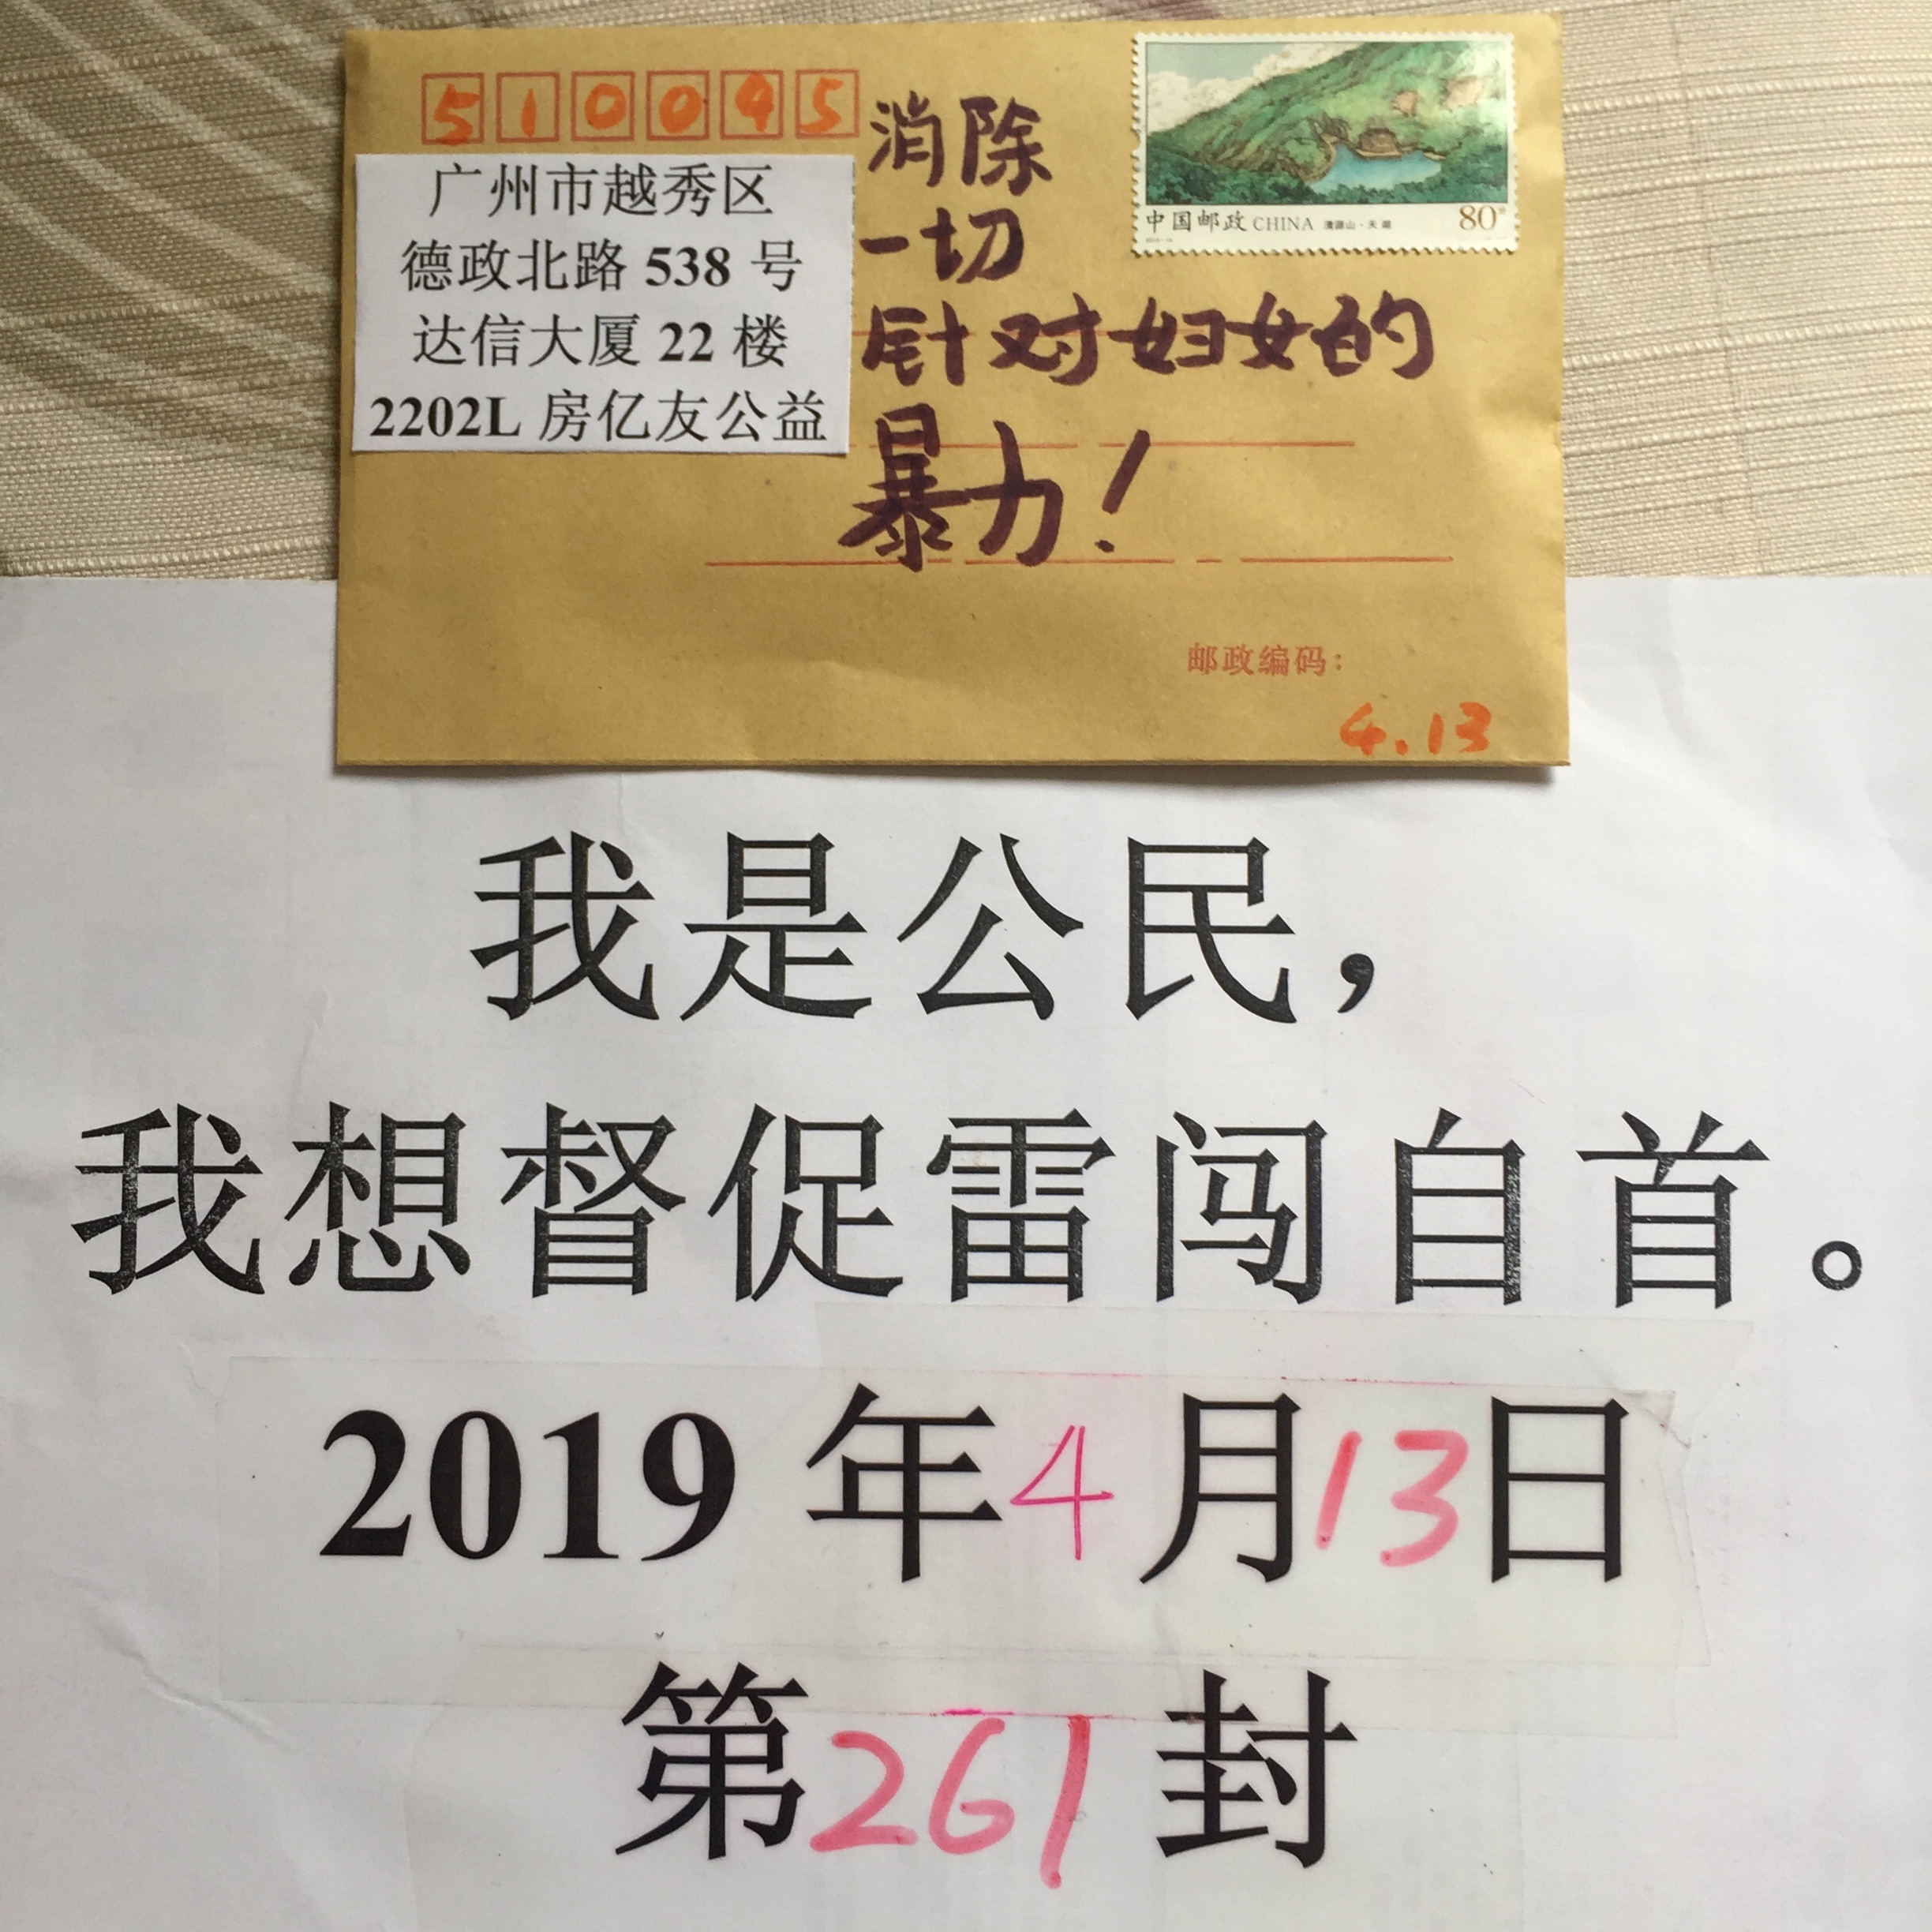 510045
广州市越秀区
德政北路 538 号
达信大厦 22 楼
2202L 房亿友公益
消除
一切
针对妇女的
暴力！
中国邮政 CHINA 清源山·天湖 80分
邮政编码：
4.13
我是公民，
我想督促雷闯自首。
2019 年 4 月 13 日
第 261 封